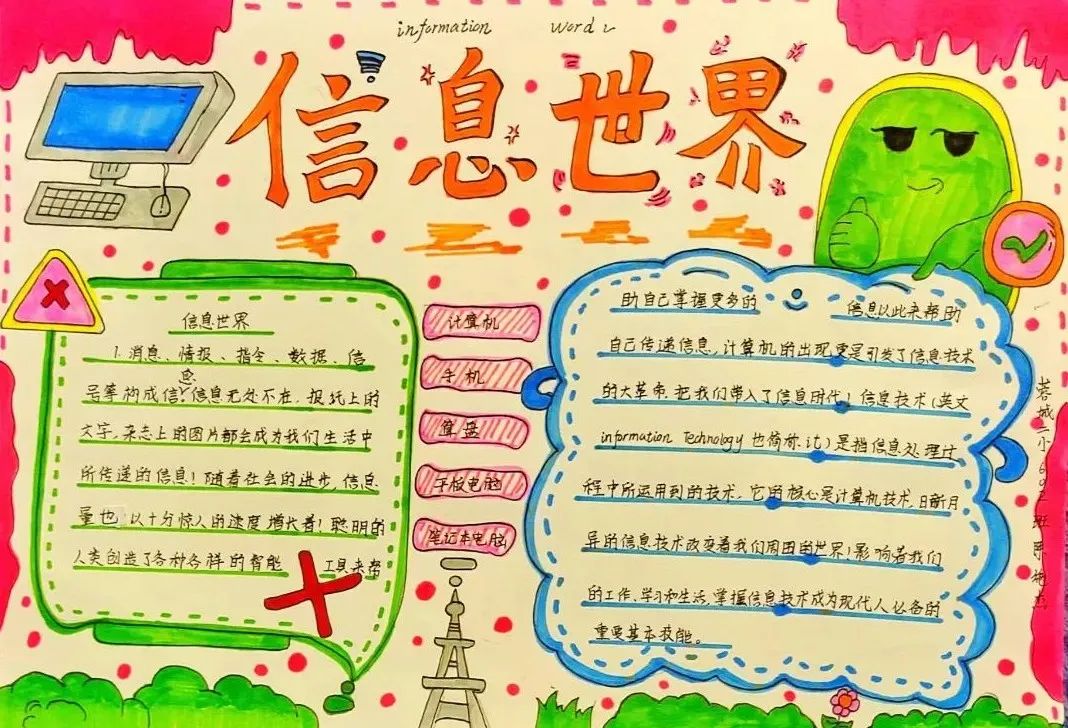 information wordv
信息世界
信息世界
1.消息、情报、指令、数据、信
号等构成信息!信息无处不在,报纸上的
文字,杂志上的图片都会成为我们生活中
所传递的信息!随着社会的进步,信息
量也以十分惊人的速度增长着!聪明的
人类创造了各种各样的智能 工具来帮
计算机
手机
算盘
平板电脑
笔记本电脑
助自己掌握更多的 信息以此来帮助
自己传递信息,计算机的出现更是引发了信息技术
的大革命,把我们带入了信息时代!信息技术(英文
information Technology 也简称,it)是指信息处理过
程中所运用到的技术,它的核心是计算机技术,日新月
异的信息技术改变着我们周围的世界!影响着我们
的工作、学习和生活,掌握信息技术成为现代人必备的
重要基本技能。
蓉城二小602班